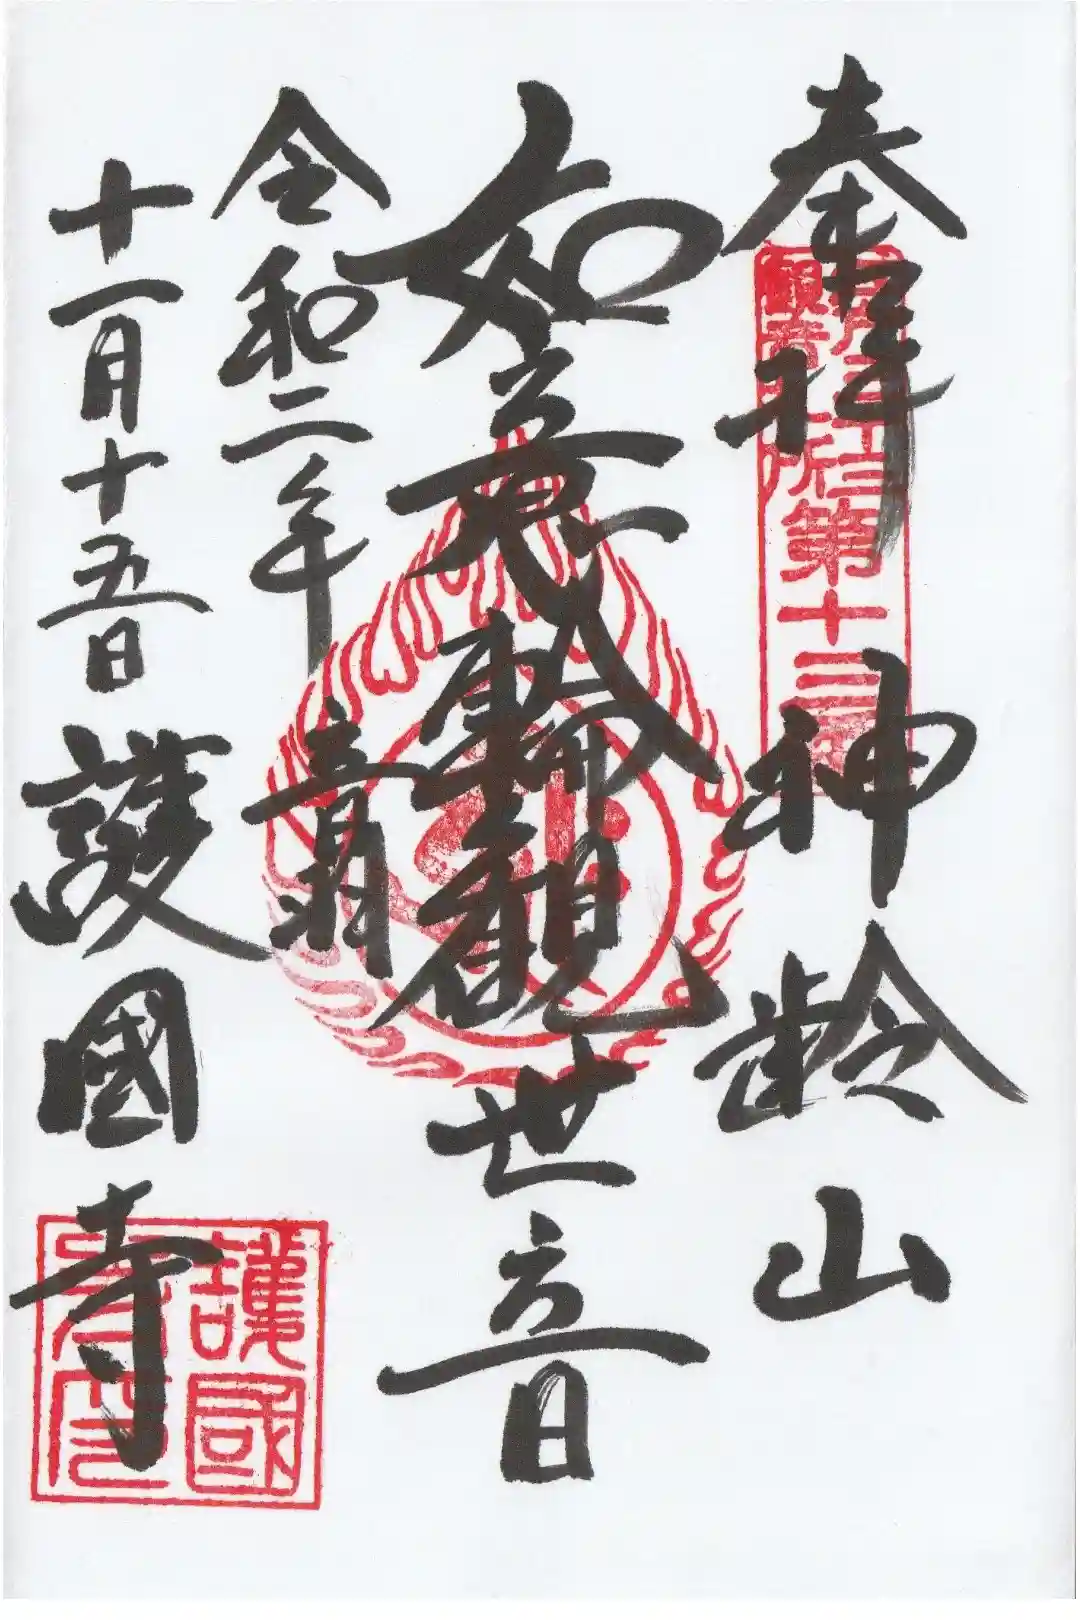 奉拝 神齢山
第十三番
如意輪観世音
令和二年
音羽
十一月十五日 護國寺
護國
寺印